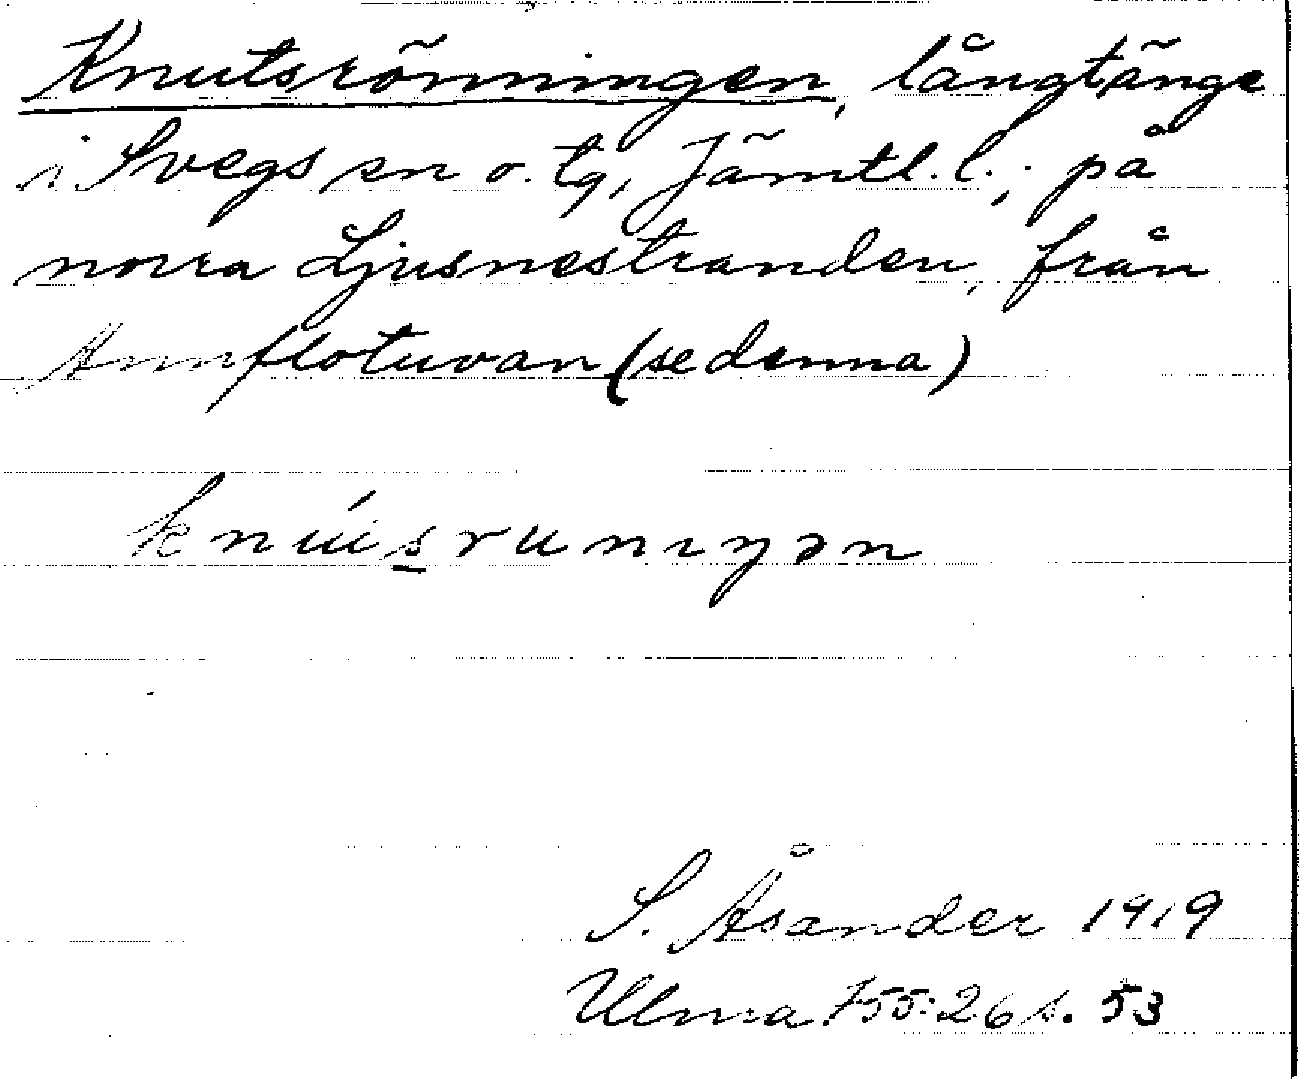 Knutsrönningen, långtänge
i Svegs sn o. tg, Jämtl. l.; på
norra Ljusnestranden, från
Annflotuvan (se denna)
knúisrunıŋən
S. Åsander 1919
Ulma 755:26 s. 53